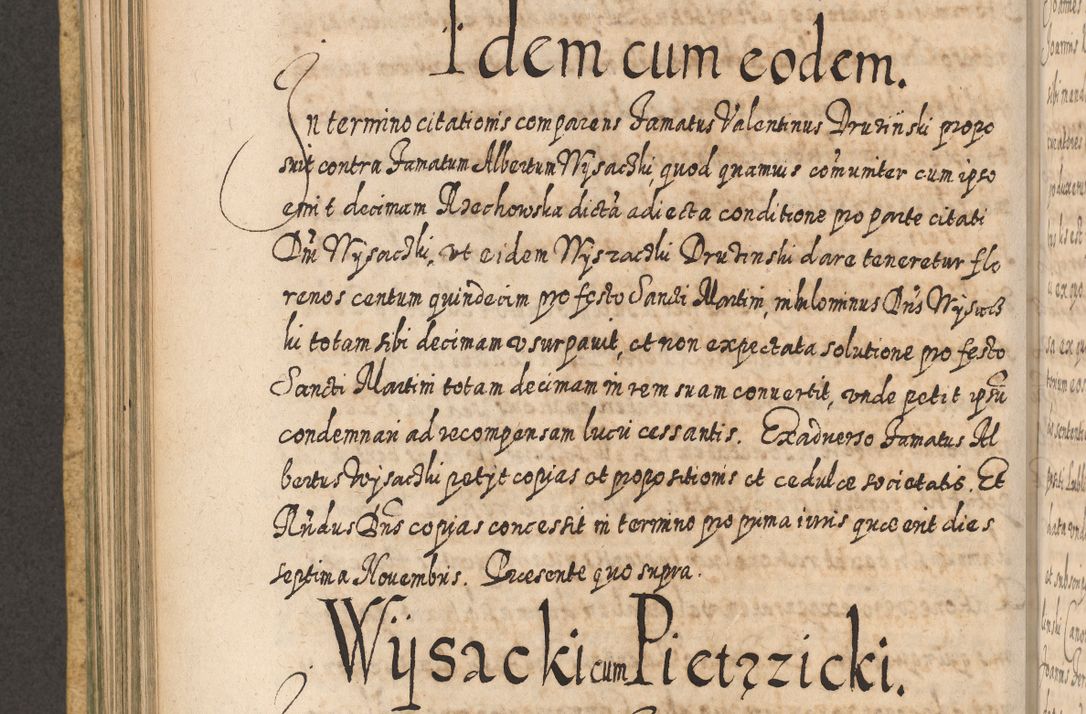 Idem cum eodem.
In termino citationis comparens Famatus Valentinus Druzinski propo
suit contra Famatum Albertum Wysacki, quod quamuis com̃uniter cum ipso
emit decimam Rzechowska dictã adiecta conditione pro parte citati
Dñi Wysacki, vt eidem Wyszacki Druzinski dare teneretur flo
renos centum quindecim pro festo Sancti Martini, nihilominus Dñs Wysac
ki totam sibi decimam vsurpauit, et non expectata solutione pro festo
Sancti Martini totam decimam in rem suam conuertit, vnde petit ipsũ
condemnari ad recompensam lucri cessantis. Exaduerso Famatus Al
bertus Wysacki petijt copias et propositionis et cedulæ societatis. Et
Rñdus Dñs copias concessit in termino pro prima iuris quæ erit dies
septima Nouembris. Præsente quo supra.
Wÿsacki cum Pietrzicki.